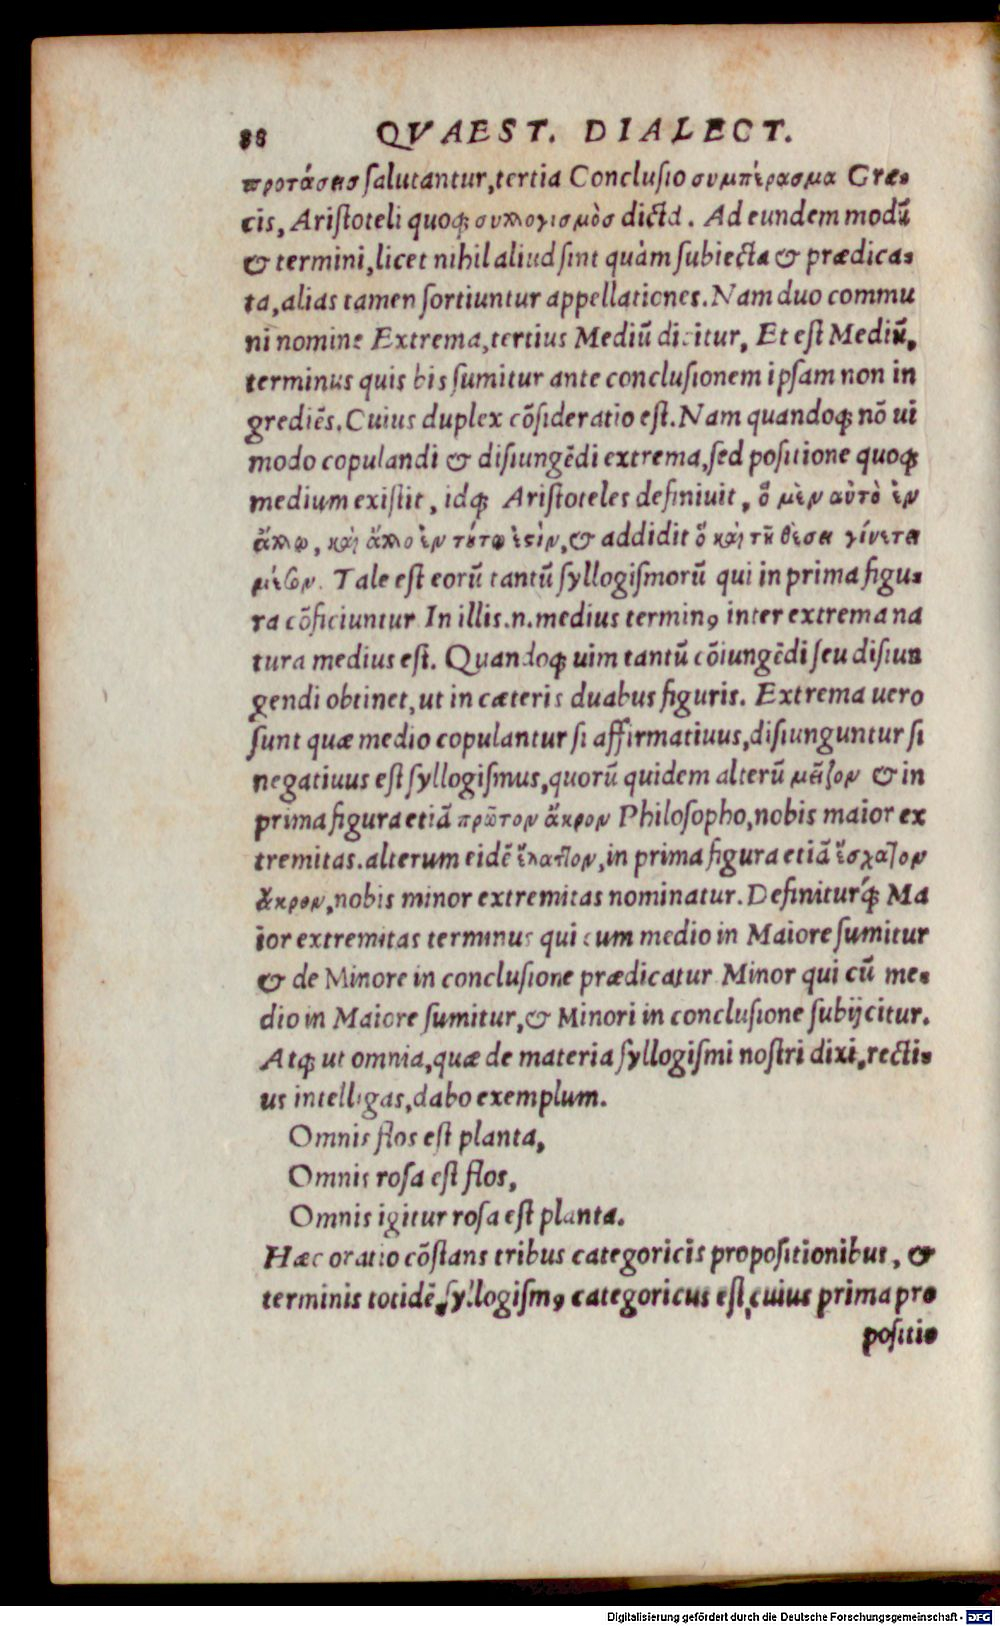 88 QVAEST. DIALECT.
προτάσεισ salutantur, tertia Conclusio συμπέρασμα Græ-
cis, Aristoteli quoqꝫ συλλογισμὸσ dicta. Ad eundem modũ
& termini, licet nihil aliud sint quàm subiecta & prædica-
ta, alias tamen sortiuntur appellationes. Nam duo commu
ni nomine Extrema, tertius Mediũ dicitur, Et est Mediũ,
terminus quis bis sumitur ante conclusionem ipsam non in
grediẽs. Cuius duplex cõsideratio est. Nam quandoqꝫ nõ ui
modo copulandi & disiungẽdi extrema, sed positione quoqꝫ
medium existit, idqꝫ Aristoteles definiuit, ὅ μὲν αὐτὸ ἐν
ἄλλῳ, καὶ ἄλλο ἐν τούτῳ ἐστὶν, & addidit ὅ καὶ τῆ θέσει γίνεται
μέσον. Tale est eorũ tantũ syllogismorũ qui in prima figu-
ra cõficiuntur In illis .n. medius terminꝰ inter extrema na
tura medius est. Quandoqꝫ uim tantũ cõiungẽdi seu disiun
gendi obtinet, ut in cæteris duabus figuris. Extrema uero
sunt quæ medio copulantur si affirmatiuus, disiunguntur si
negatiuus est syllogismus, quorũ quidem alterũ μεῖζον & in
prima figura etiã πρῶτον ἄκρον Philosopho, nobis maior ex
tremitas. alterum eidẽ ἔλαττον, in prima figura etiã ἔσχατον
ἄκρον, nobis minor extremitas nominatur. Definiturqꝫ́ Ma
ior extremitas terminus qui cum medio in Maiore sumitur
& de Minore in conclusione prædicatur Minor qui cũ me-
dio in Maiore sumitur, & Minori in conclusione subijcitur.
Atqꝫ ut omnia, quæ de materia syllogismi nostri dixi, recti-
us intelligas, dabo exemplum.
Omnis flos est planta,
Omnis rosa est flos,
Omnis igitur rosa est planta.
Hæc oratio cõstans tribus categoricis propositionibus, &
terminis totidẽ, syllogismꝰ categoricus est, cuius prima pro
positio
Digitalisierung gefördert durch die Deutsche Forschungsgemeinschaft - DFG